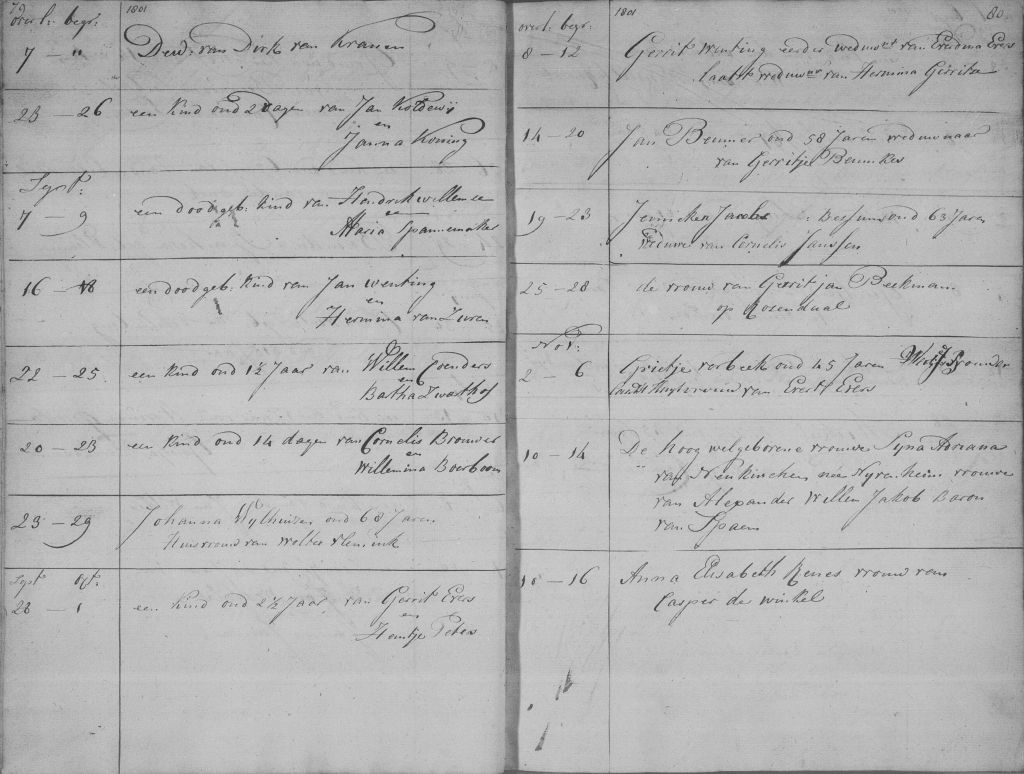 79
overl: begr:
1801
7 – 11 Dew: van Dirk van Kranen
23 – 26 een kind oud 2 dagen van Jan Koldewij
en
Janna Koning
Sept:
7 – 9 een doodgeb: kind van Hendrik willemsen
en
Maria Spannemaker
16 – 18 een doodgeb: kind van Jan wenting
en
Hermina van Zuren
22 – 25 een kind oud 1½ Jaar van Willem Coenders
en
Bartha Zwarthof
20 – 23 een kind oud 14 dagen van Cornelis Brouwer
en
Willemina Boerboom
23 – 29 Johanna Wylhuizen oud 68 Jaren
Huisvrouw van Wolter
Sept Oct:
28 – 1 een kind oud 2½ Jaar van Gerrit Evers
en
Hentje Peters
80
overl: begr:
1801
8 – 12 Gerrit Wenting eerder weduwnr van Evers
laatst weduwnr van Hermina Gerritze
14 – 20 Jan Beumer oud 58 Jaren weduwnaar
van Gerritje Bennikes
19 – 23 Jenneken Jacobs oud 63 Jaren
vrouwe van Cornelis Janssen
25 – 28 de vrouw van Gerrit jan Beekman
op Rosendaal
Nov:
2 – 6 Grietje verbeek oud 45 Jaren
van Evert Evers
10 – 14 De hoog welgeborene vrouwe Syna Adriana
van Neukirchen née Nyvenheim vrouwe
van Alexander Willem Jakob Baron
van Spaen
10 – 16 Anna Elisabeth Renes vrouw van
Casper de winkel